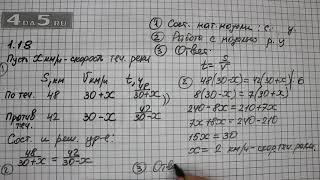 4DA5.RU
1.1.8
Пусть x км/ч - скорость теч. реки
S, км V км/ч t, ч
По теч. 48 30+x 48/30+x
Против теч. 42 30-x 42/30-x
Сост. и реш. ур-е:
② 48/30+x = 42/30-x
① Сост. мат. модели: с. у.
② Работа с моделью р. у
③ Ответ:
t = S/V
② 48(30-x) = 42(30+x) | : 6
8(30-x) = 7(30+x)
240-8x = 210+7x
7x+8x = 240-210
15x = 30
x = 2 км/ч - скор. теч. реки.
③ Отве